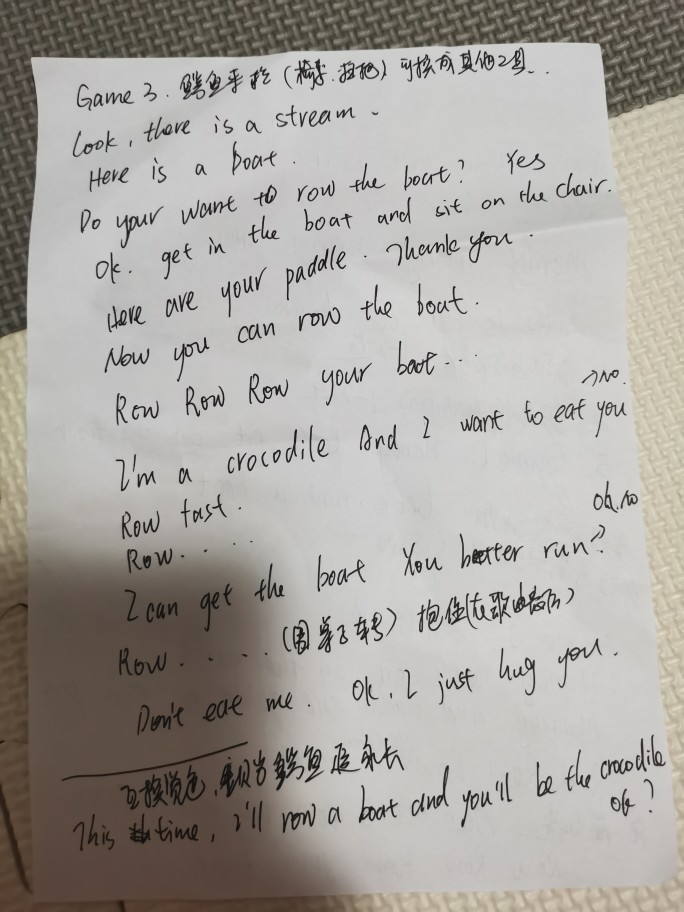 Game 3. 鳄鱼来 (椅子.) 可换成其他工具.
Look, there is a stream.
Here is a boat.
Do your want to row the boat? Yes
Ok. get in the boat and sit on the chair.
Here are your paddle. Thank you.
Now you can row the boat.
Row Row Row your boat...
→No.
I'm a crocodile And I want to eat you
Row fast.
Row....
Oh.no
I can get the boat You better run?
Row..... (围着椅子转) 抱住(在歌曲最后)
Don't eat me. Ok. I just hug you.
互换角色, 宝贝当鳄鱼追家长
This time, I'll row a boat and you'll be the crocodile
ok?